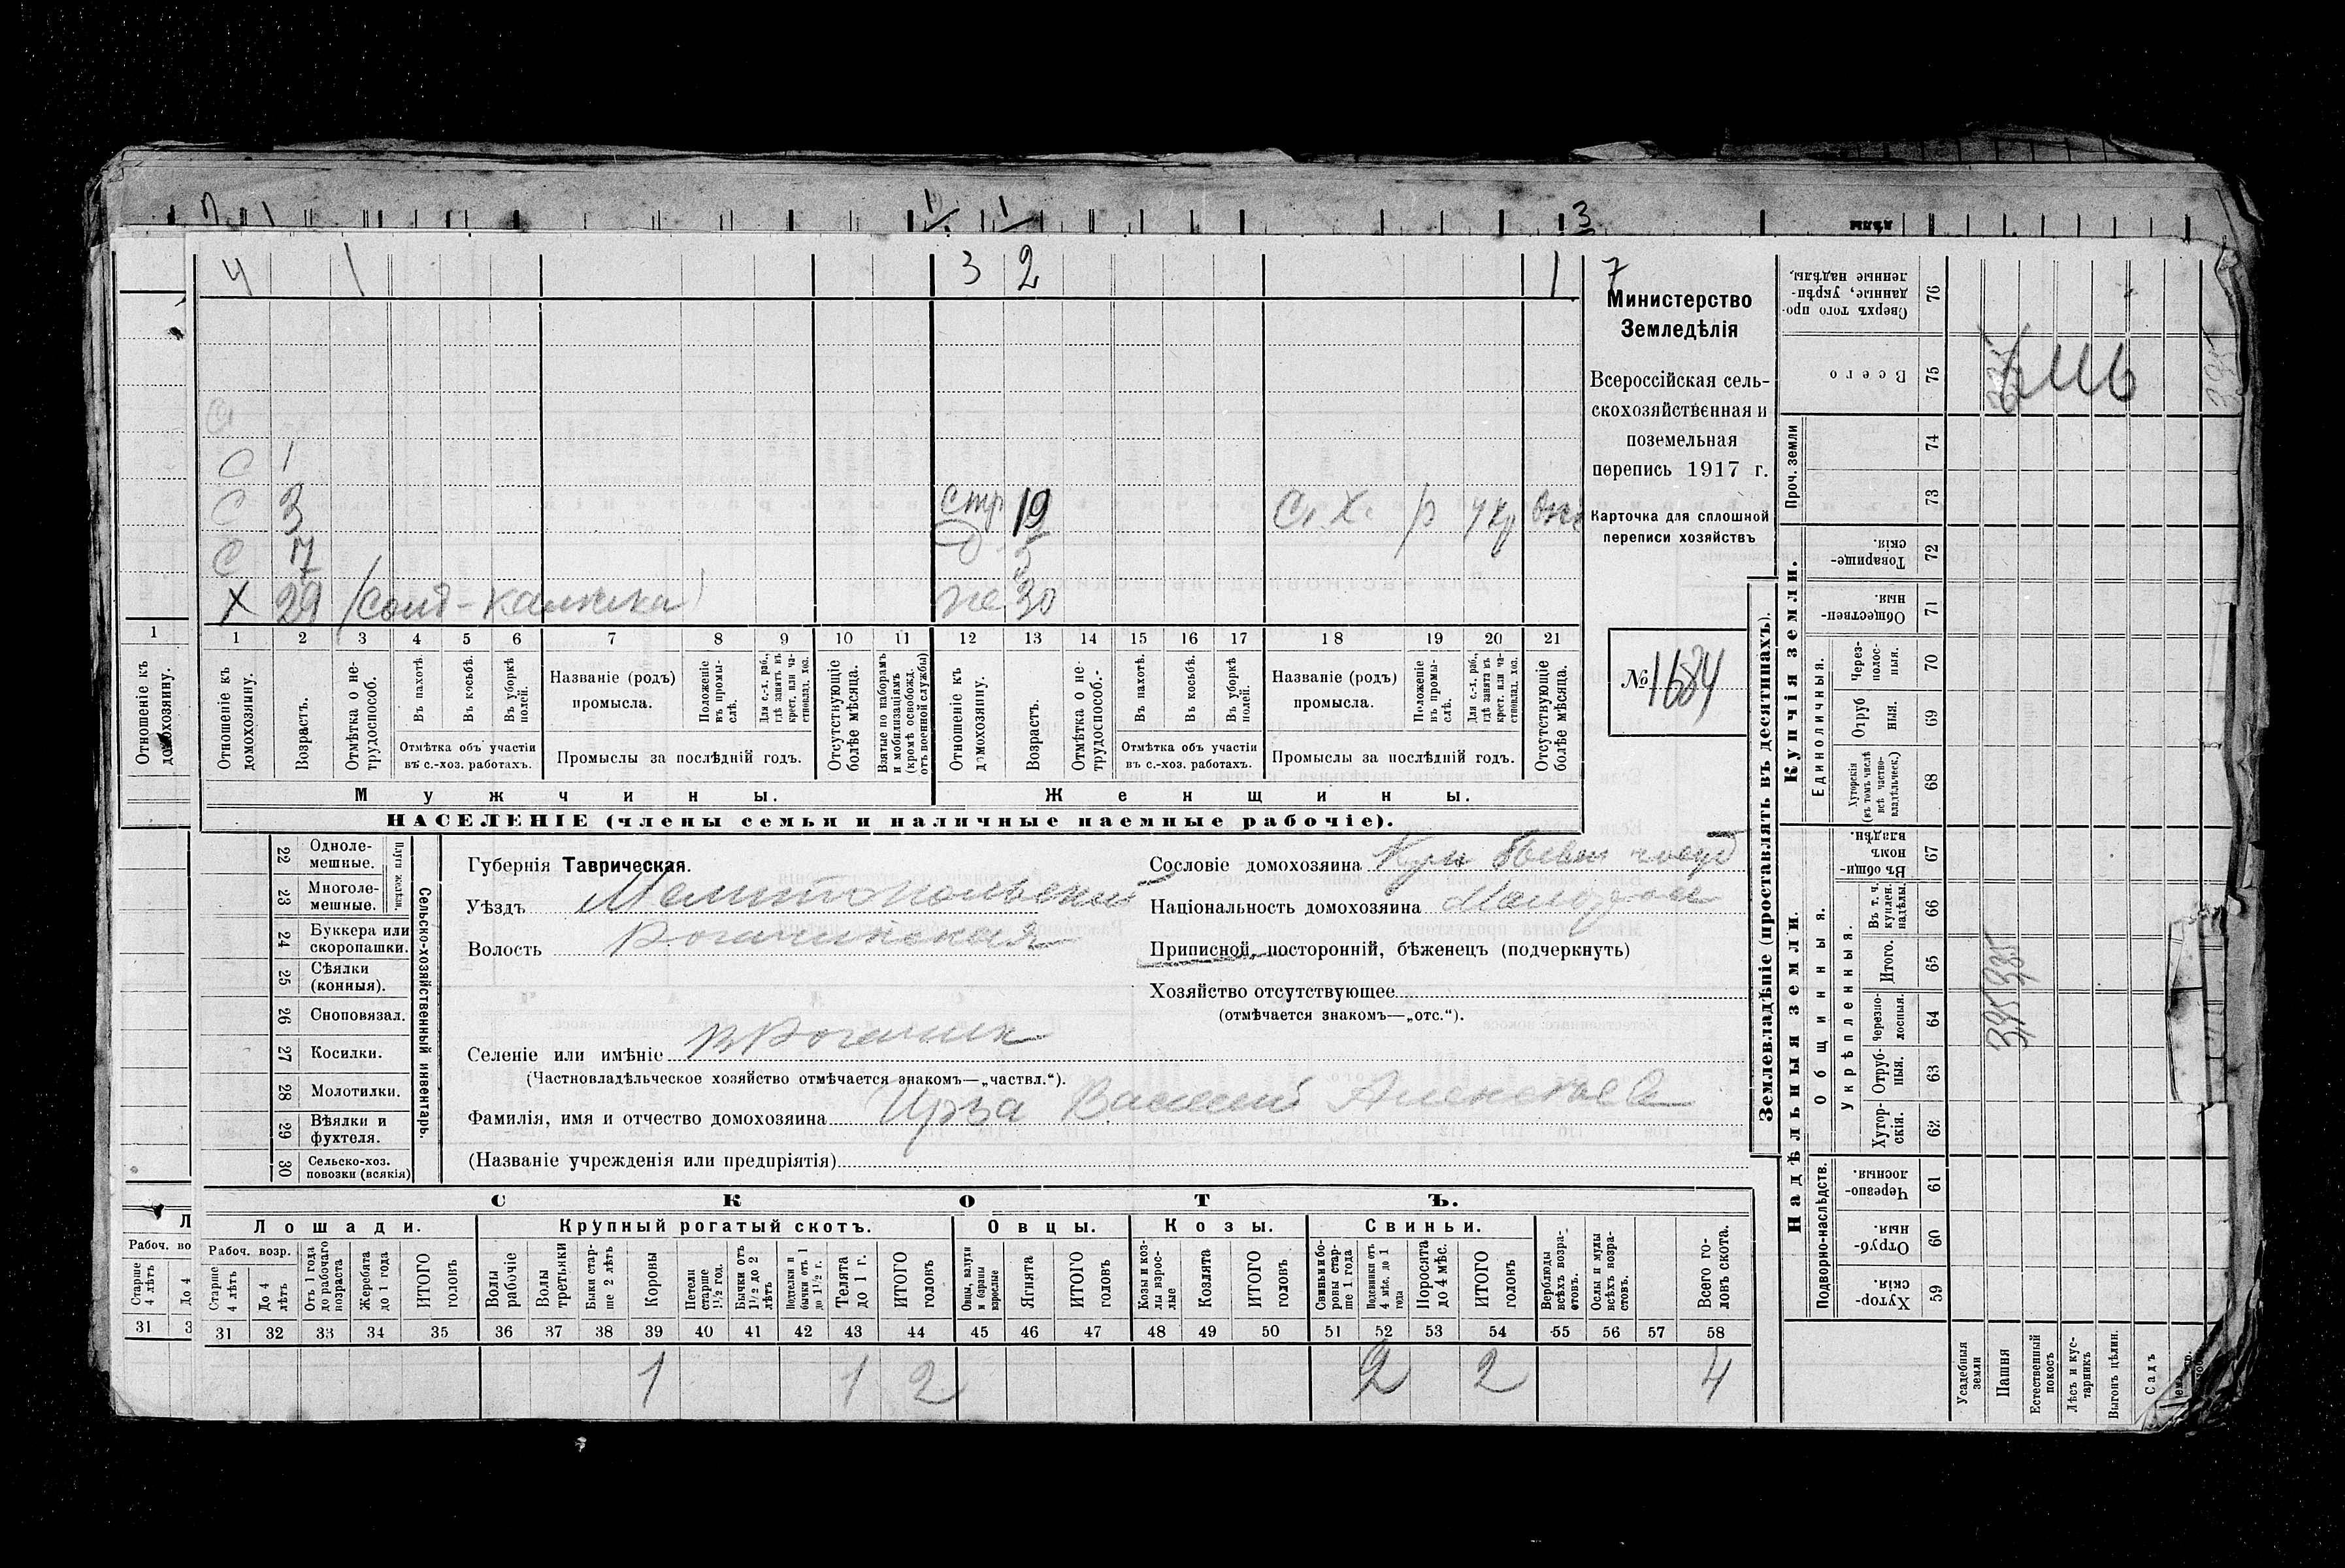 4 1 3 2 1 7
Министерство
Земледѣлія
Всероссійская сель-
скохозяйственная и
поземельная
перепись 1917 г.
Карточка для сплошной
переписи хозяйствъ
№ 1684
С 1
С 3 стр 19 С. Х. р у кр
С 7 д 5
Х 29 же 30
1 2 3 4 5 6 7 8 9 10 11 12 13 14 15 16 17 18 19 20 21
Отношеніе къ домохозяину.
Возрастъ.
Отмѣтка о не-трудоспособ.
Въ пахотѣ.
Въ косьбѣ.
Въ уборкѣ полей.
Отмѣтка объ участіи
въ с.-хоз. работахъ.
Названіе (родъ)
промысла.
Положеніе въ промы-слѣ.
Для с.-х. раб., гдѣ занятъ въ крест. или ча-стновлад. хоз.
Промыслы за послѣдній годъ.
Отсутствующіе болѣе мѣсяца.
Взятые по наборамъ и мобилизаціямъ (кромѣ освобожд. отъ военной службы)
Отношеніе къ домохозяину.
Возрастъ.
Отмѣтка о не-трудоспособ.-
Въ пахотѣ.
Въ косьбѣ.
Въ уборкѣ полей.
Отмѣтка объ участіи
въ с.-хоз. работахъ.
Названіе (родъ)
промысла.
Положеніе въ промы-слѣ.
Для с.-х. раб., гдѣ занята въ крест. или ча-стновлад. хоз.
Промыслы за послѣдній годъ.
Отсутствующіе болѣе мѣсяца.
Мужчины. Женщины.
НАСЕЛЕНІЕ (члены семьи и наличные наемные рабочіе).
Сельско-хозяйственный инвентарь.
Плуги желѣзн.
22 Одноле-мешные.
23 Многоле-мешные.
24 Буккера или скоропашки.
25 Сѣялки (конныя).
26 Сноповязал.
27 Косилки.
28 Молотилки.
29 Вѣялки и фухтеля.
30 Сельско-хоз. повозки (всякія)
Губернія Таврическая.
Уѣздъ Мелитопольский
Волость Рогачинская
Селеніе или имѣніе В Рогачик
(Частновладѣльческое хозяйство отмѣчается знакомъ—„частвл.“).
Фамилія, имя и отчество домохозяина Ирза Василий Алексѣев
(Названіе учрежденія или предпріятія)
Сословіе домохозяина
Національность домохозяина Малорос
Приписной, посторонній, бѣженецъ (подчеркнуть)
Хозяйство отсутствующее
(отмѣчается знакомъ—„отс.“).
СКОТЪ.
Лошади. Крупный рогатый скотъ. Овцы. Козы. Свиньи.
Рабоч. возр.
Старше 4 лѣтъ
До 4 лѣтъ
Отъ 1 года до рабочаго возраста
Жеребята до 1 года
ИТОГО головъ
Волы рабочіе
Волы третьяки
Быки стар-ше 2 лѣтъ
Коровы
Нетели старше 1½ год.
Бычки отъ 1½ до 2 лѣтъ
Подтелки и бычки отъ 1 до 1½ г.
Телята до 1 г.
ИТОГО головъ
Овцы, валухи и бараны взрослые
Ягнята
ИТОГО головъ
Козы и коз-лы взрос-лые
Козлята
ИТОГО головъ
Свиньи и бо-ровы стар-ше 1 года
Подсвинки отъ 4 мѣс. до 1 года
Поросята до 4 мѣс.
ИТОГО головъ
Верблюды всѣхъ возра-стовъ.
Ослы и мулы всѣхъ возра-стовъ.
Всего го-ловъ скота.
31 32 33 34 35 36 37 38 39 40 41 42 43 44 45 46 47 48 49 50 51 52 53 54 55 56 57 58
1 1 2 2 2 4
Землевладѣніе (проставлять въ десятинахъ).
Надѣльныя земли. Купчія земли.
Подворно-наслѣдств.
Хутор-скія. 59
Отруб-ныя. 60
Черезпо-лосныя. 61
Общинныя.
Укрѣпленныя.
Хутор-скія. 62
Отруб-ныя. 63
Черезпо-лосныя. 64
Итого. 65
Въ т. ч. куплен. надѣлы. 66
Въ общи-номъ владѣн. 67
Единоличныя.
Хуторскія (въ томъ числѣ всѣ частно-владѣльческ.) 68
Отруб ныя. 69
Через-полос-ныя. 70
Обществен-ныя. 71
Товарище-скія. 72
Проч. земли 73 74
Всего 75
Сверхъ того про-данные, укрѣп-ленные надѣлы. 76
Усадебныя земли
Пашня
Естественный покосъ
Лѣсъ и кус-тарникъ
Выгонъ цѣлин.
Садъ